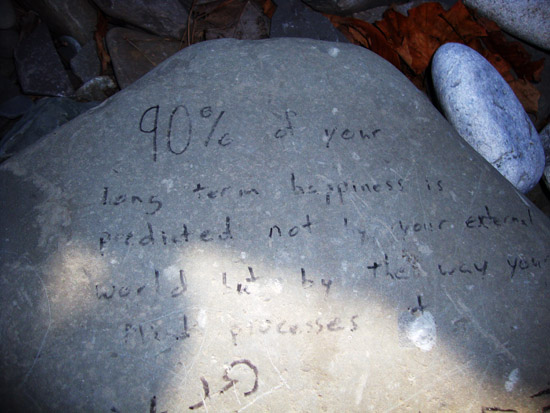 90% of your
long term happiness is
predicted not by your external
world but by the way your
processes